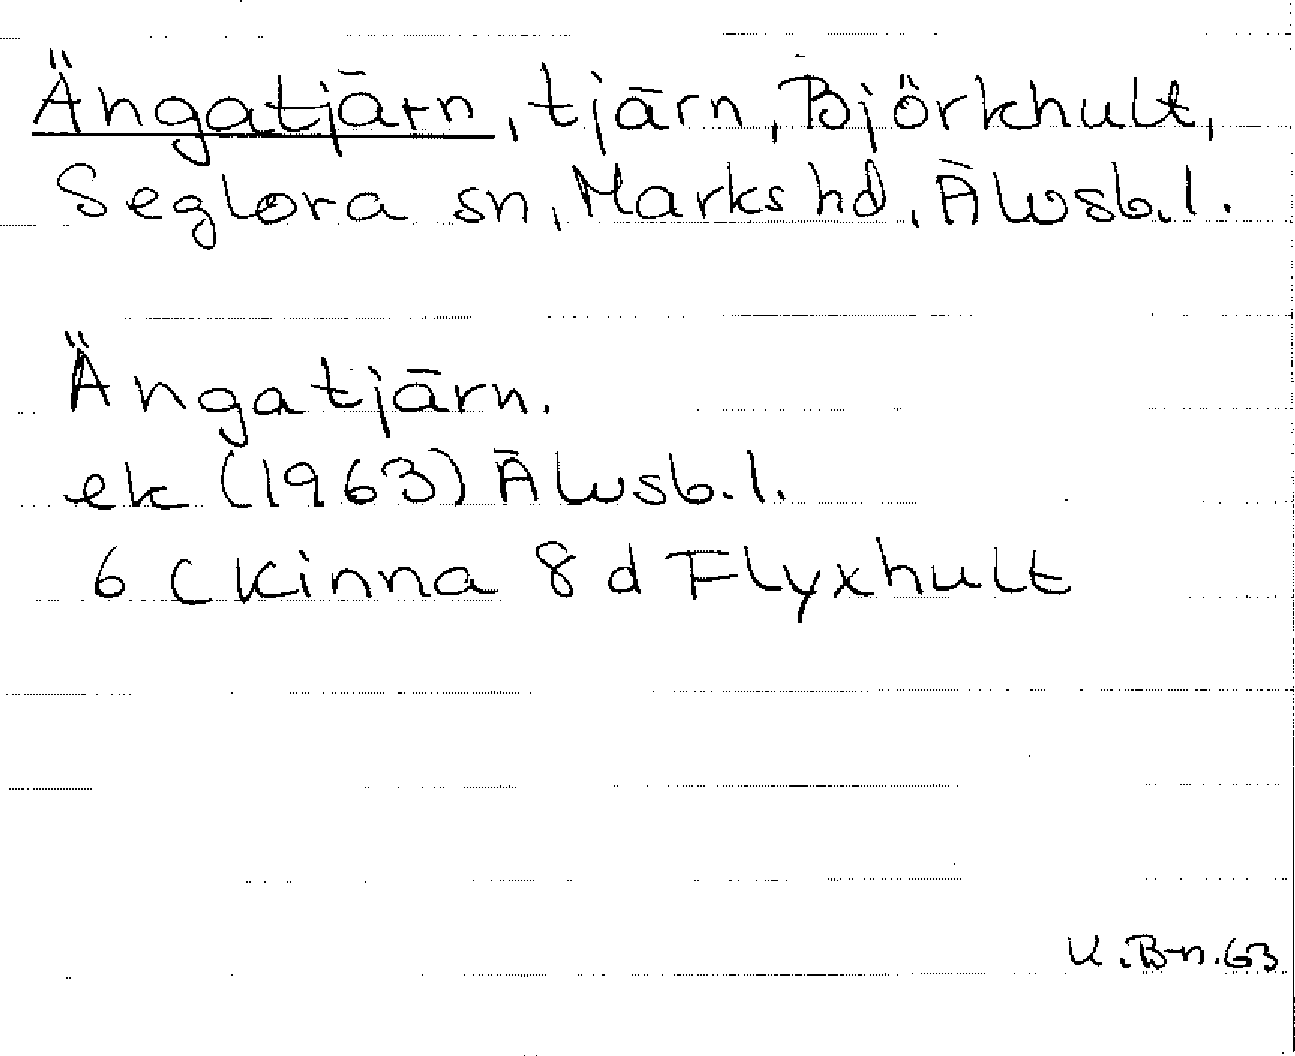 Ängatjärn, tjärn, Björkhult,
Seglora sn, Marks hd, Älvsb. l.
Ängatjärn.
ek (1963) Älvsb. l.
6 C Kinna 8 d Flyxhult
K. B-n. 63